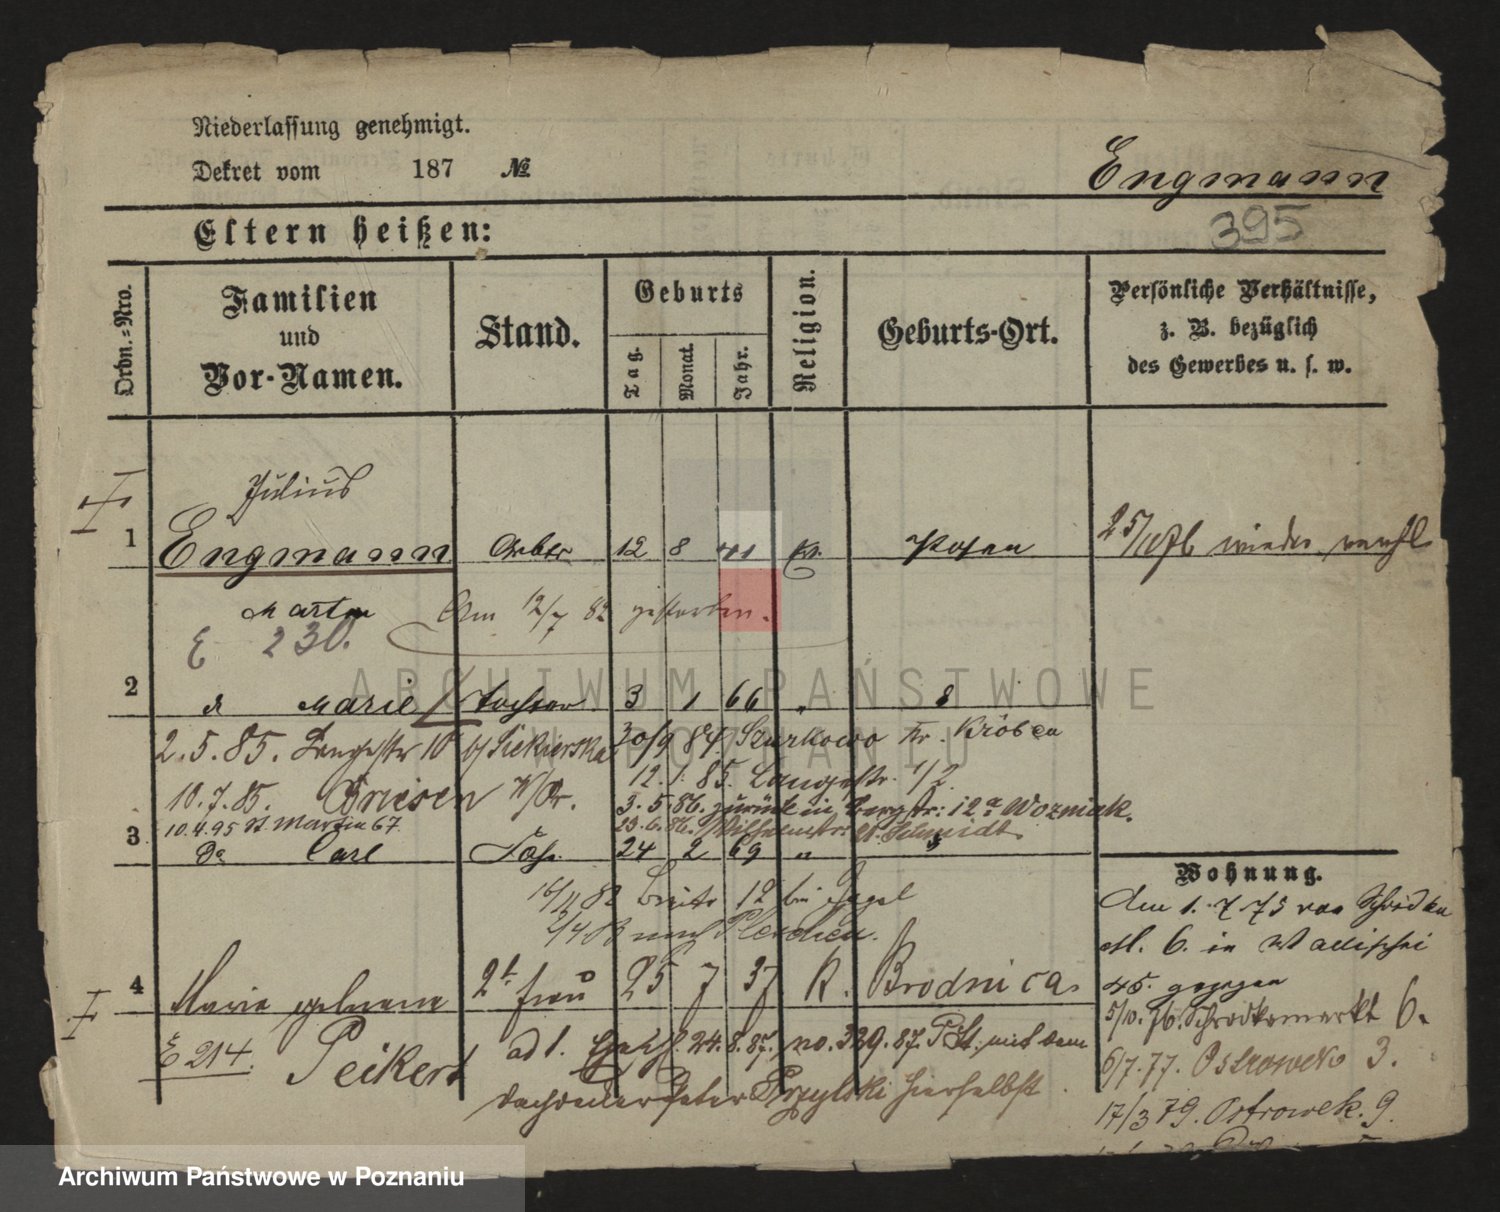 Niederlassung genehmigt.
Dekret vom 187 №
Engmann
395
Eltern heißen:
Ordn.-Nro.
Familien
und
Vor-Namen.
Stand.
Geburts
Tag.
Monat.
Jahr.
Religion.
Geburts-Ort.
Persönliche Verhältnisse,
z. B. bezüglich
des Gewerbes u. s. w.
Julius
1 Engmann Arbtr 12 8 41 K. Posen 25/ wieder
Martin Am 12/7 82 gestorben.
E 230.
2 d Marie Tochter 3 1 66 "
2.5.85. Langestr 10 b/ Siekierska 30/9 84. Szurkowo Kr. Kröben
12. 1. 85. Langestr. 1/2
10.7.85. Briesen W/Pr. 3.5.86. zurück in Bergstr: 12a Wozniak.
10.4.95 St. Martin 67 23.6.86. Wilhelmstr: Schmidt
3 do Carl Sohn 24 2 69 "
16/11 82 Breite 12 bei Jagel
2/4 83 nach
4 Marie geborene 2t. Frau 25 7 37 K. Brodnica.
E 214. Peikert ad 1. 24.8.87. no. 339.87. P. St. mit dem
Dachdecker Peter Przylski hierselbst
Wohnung.
Am 1. 7 75 von Schrodka
6. in Wallischei
45. gezogen
5/10. 76. Schrodkamarkt 6.
6/7. 77. Ostrowek 3.
17/3 79. Ostrowek. 9.
ARCHIWUM PAŃSTWOWE
W POZNANIU
Archiwum Państwowe w Poznaniu